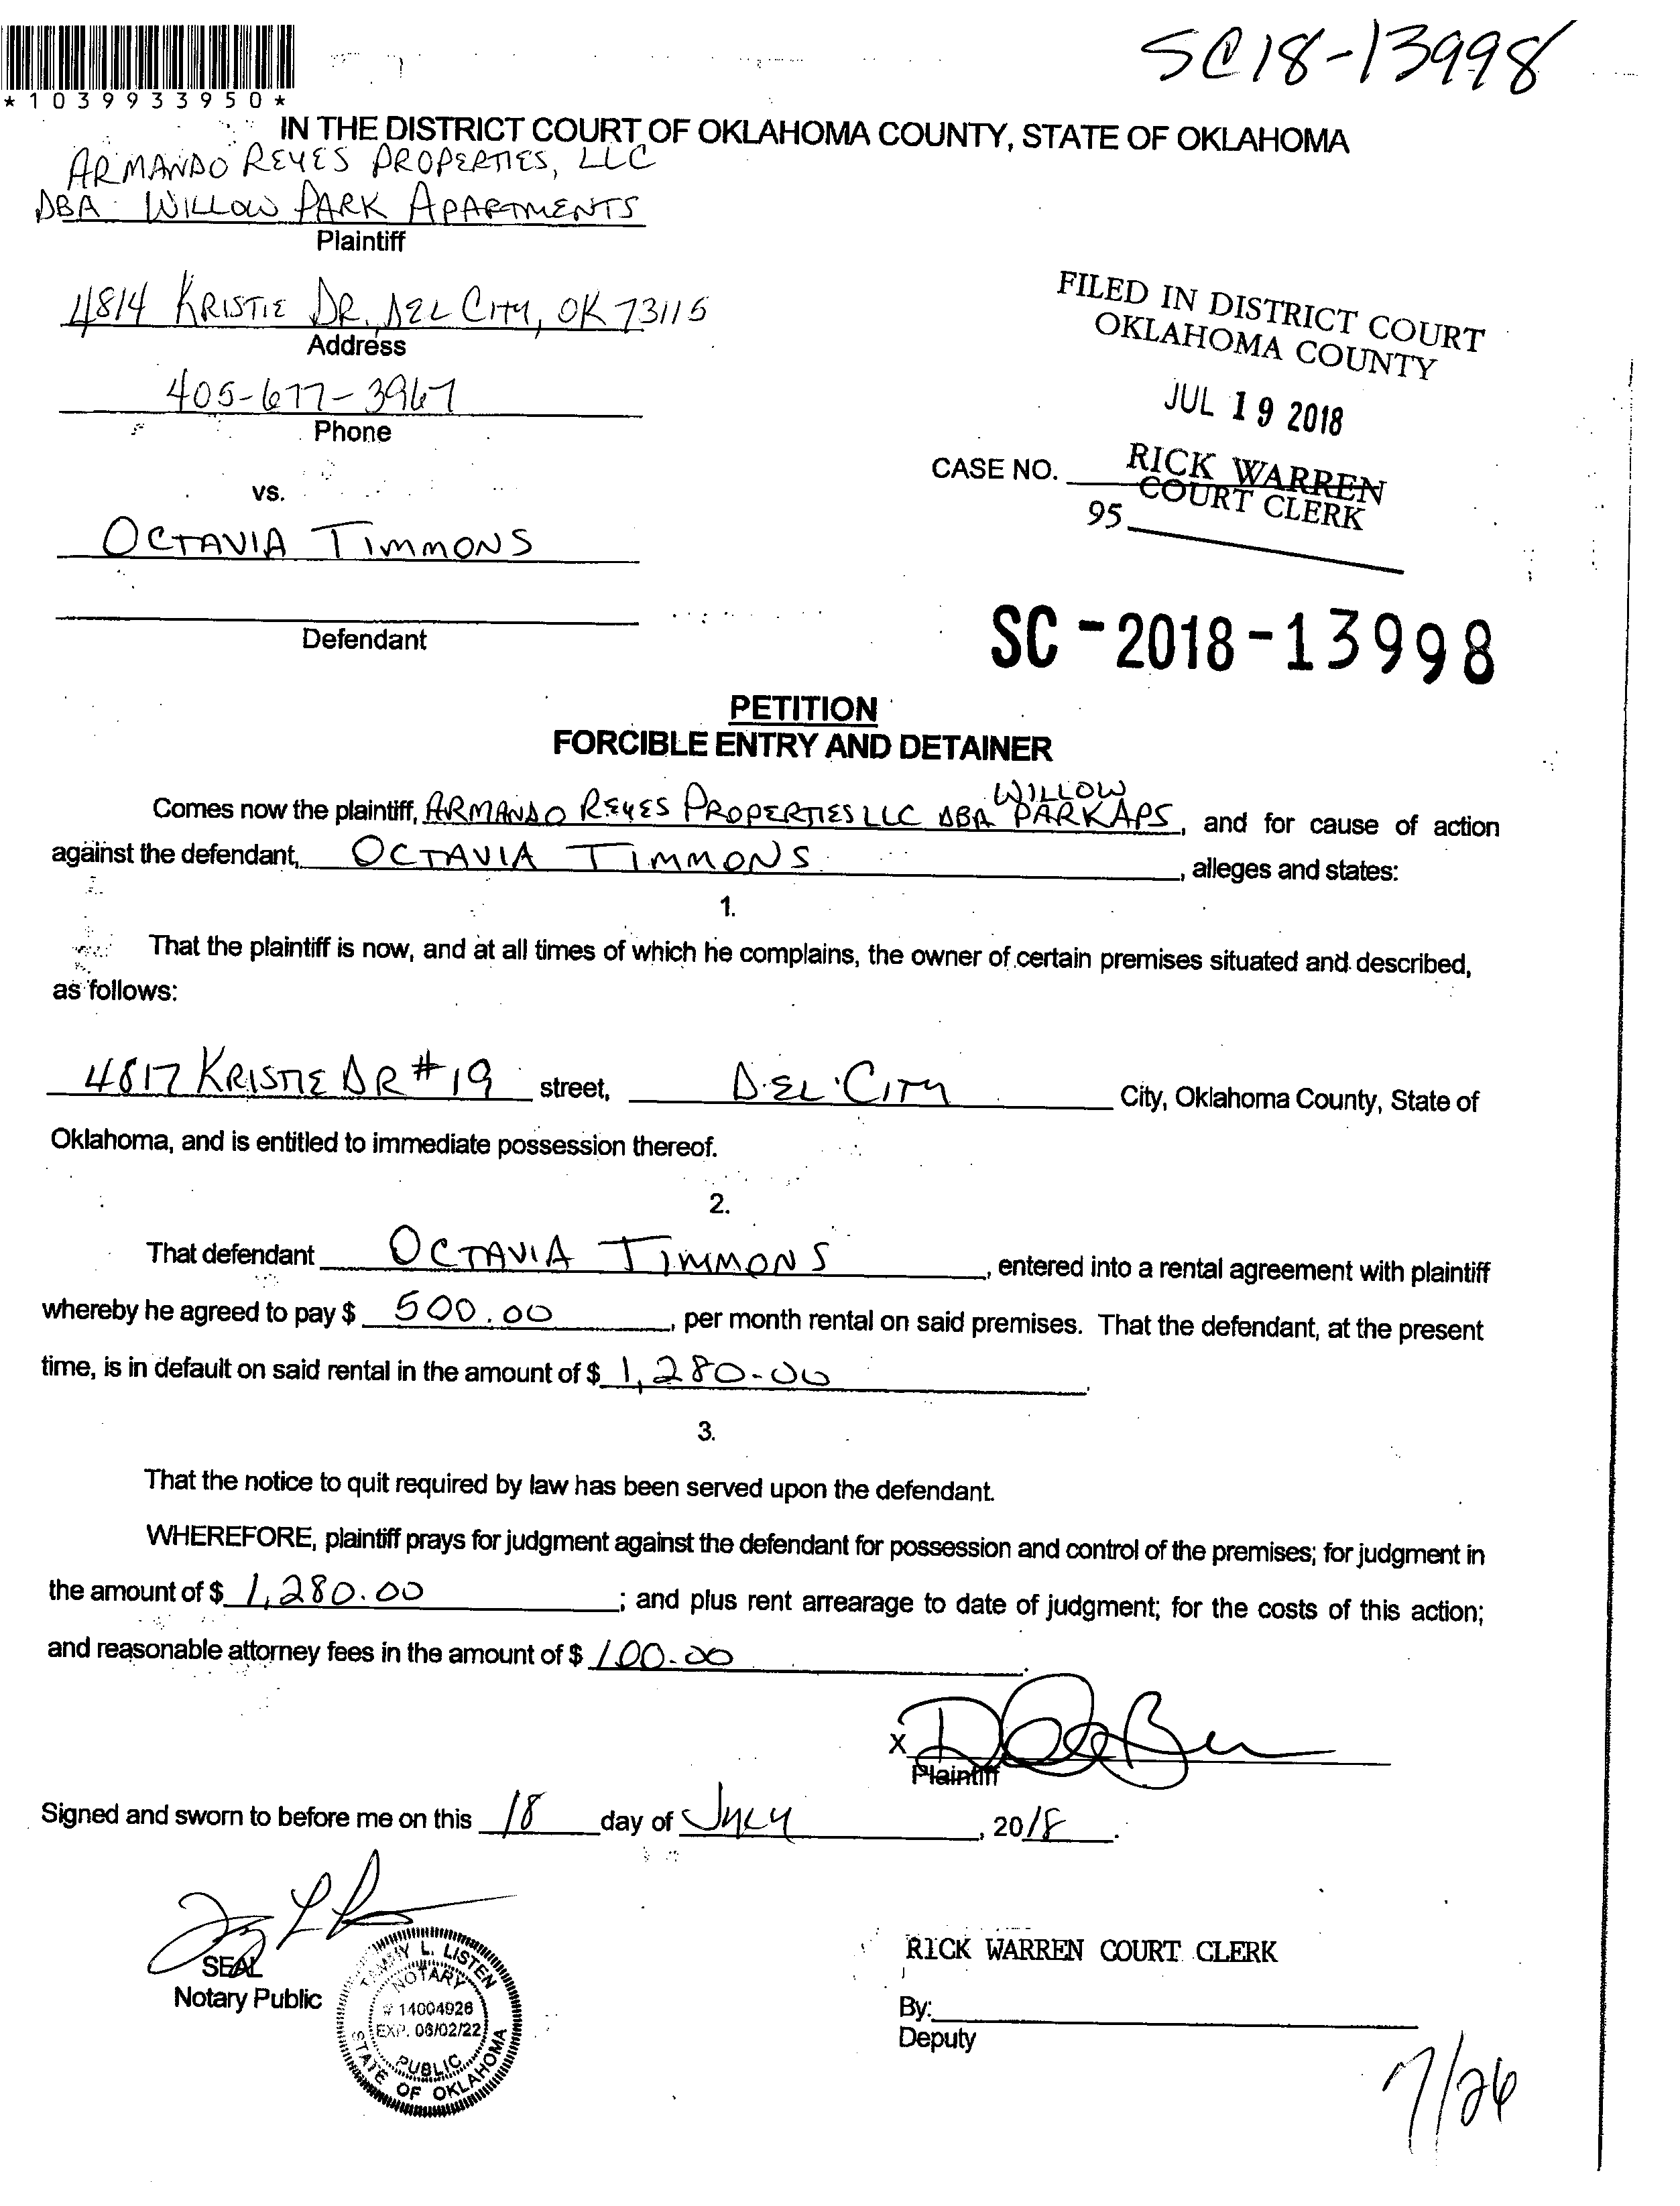 SC18-13998
*1039933950*
IN THE DISTRICT COURT OF OKLAHOMA COUNTY, STATE OF OKLAHOMA
ARMANDO REYES PROPERTIES, LLC
DBA WILLOW PARK APARTMENTS
Plaintiff
4814 KRISTIE DR. DEL CITY, OK 73115
Address
405-677-3967
Phone
FILED IN DISTRICT COURT
OKLAHOMA COUNTY
JUL 19 2018
RICK WARREN
COURT CLERK
95
CASE NO.
vs.
OCTAVIA TIMMONS
Defendant
SC-2018-13998
PETITION
FORCIBLE ENTRY AND DETAINER
Comes now the plaintiff, ARMANDO REYES PROPERTIES LLC DBA WILLOW PARK APS, and for cause of action
against the defendant, OCTAVIA TIMMONS, alleges and states:
1.
That the plaintiff is now, and at all times of which he complains, the owner of certain premises situated and described,
as follows:
4817 KRISTIE DR #19 street, DEL CITY City, Oklahoma County, State of
Oklahoma, and is entitled to immediate possession thereof.
2.
That defendant OCTAVIA TIMMONS, entered into a rental agreement with plaintiff
whereby he agreed to pay $ 500.00, per month rental on said premises. That the defendant, at the present
time, is in default on said rental in the amount of $ 1,280.00.
3.
That the notice to quit required by law has been served upon the defendant.
WHEREFORE, plaintiff prays for judgment against the defendant for possession and control of the premises; for judgment in
the amount of $ 1,280.00; and plus rent arrearage to date of judgment; for the costs of this action;
and reasonable attorney fees in the amount of $ 100.00.
X
Plaintiff
Signed and sworn to before me on this 18 day of JULY, 2018.
SEAL
Notary Public
TAMMY L. LISTEN
NOTARY
# 14004926
EXP. 06/02/22
PUBLIC
STATE OF OKLAHOMA
RICK WARREN COURT CLERK
By:
Deputy
7/26